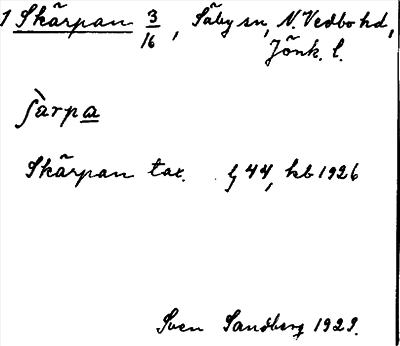 1 Skärpan 3/16, Säby sn, N. Vedbo hd,
Jönk. l.
ʃàrpa
Skärpan tax. lj 44, kb 1926
Sven Sandberg 1929.